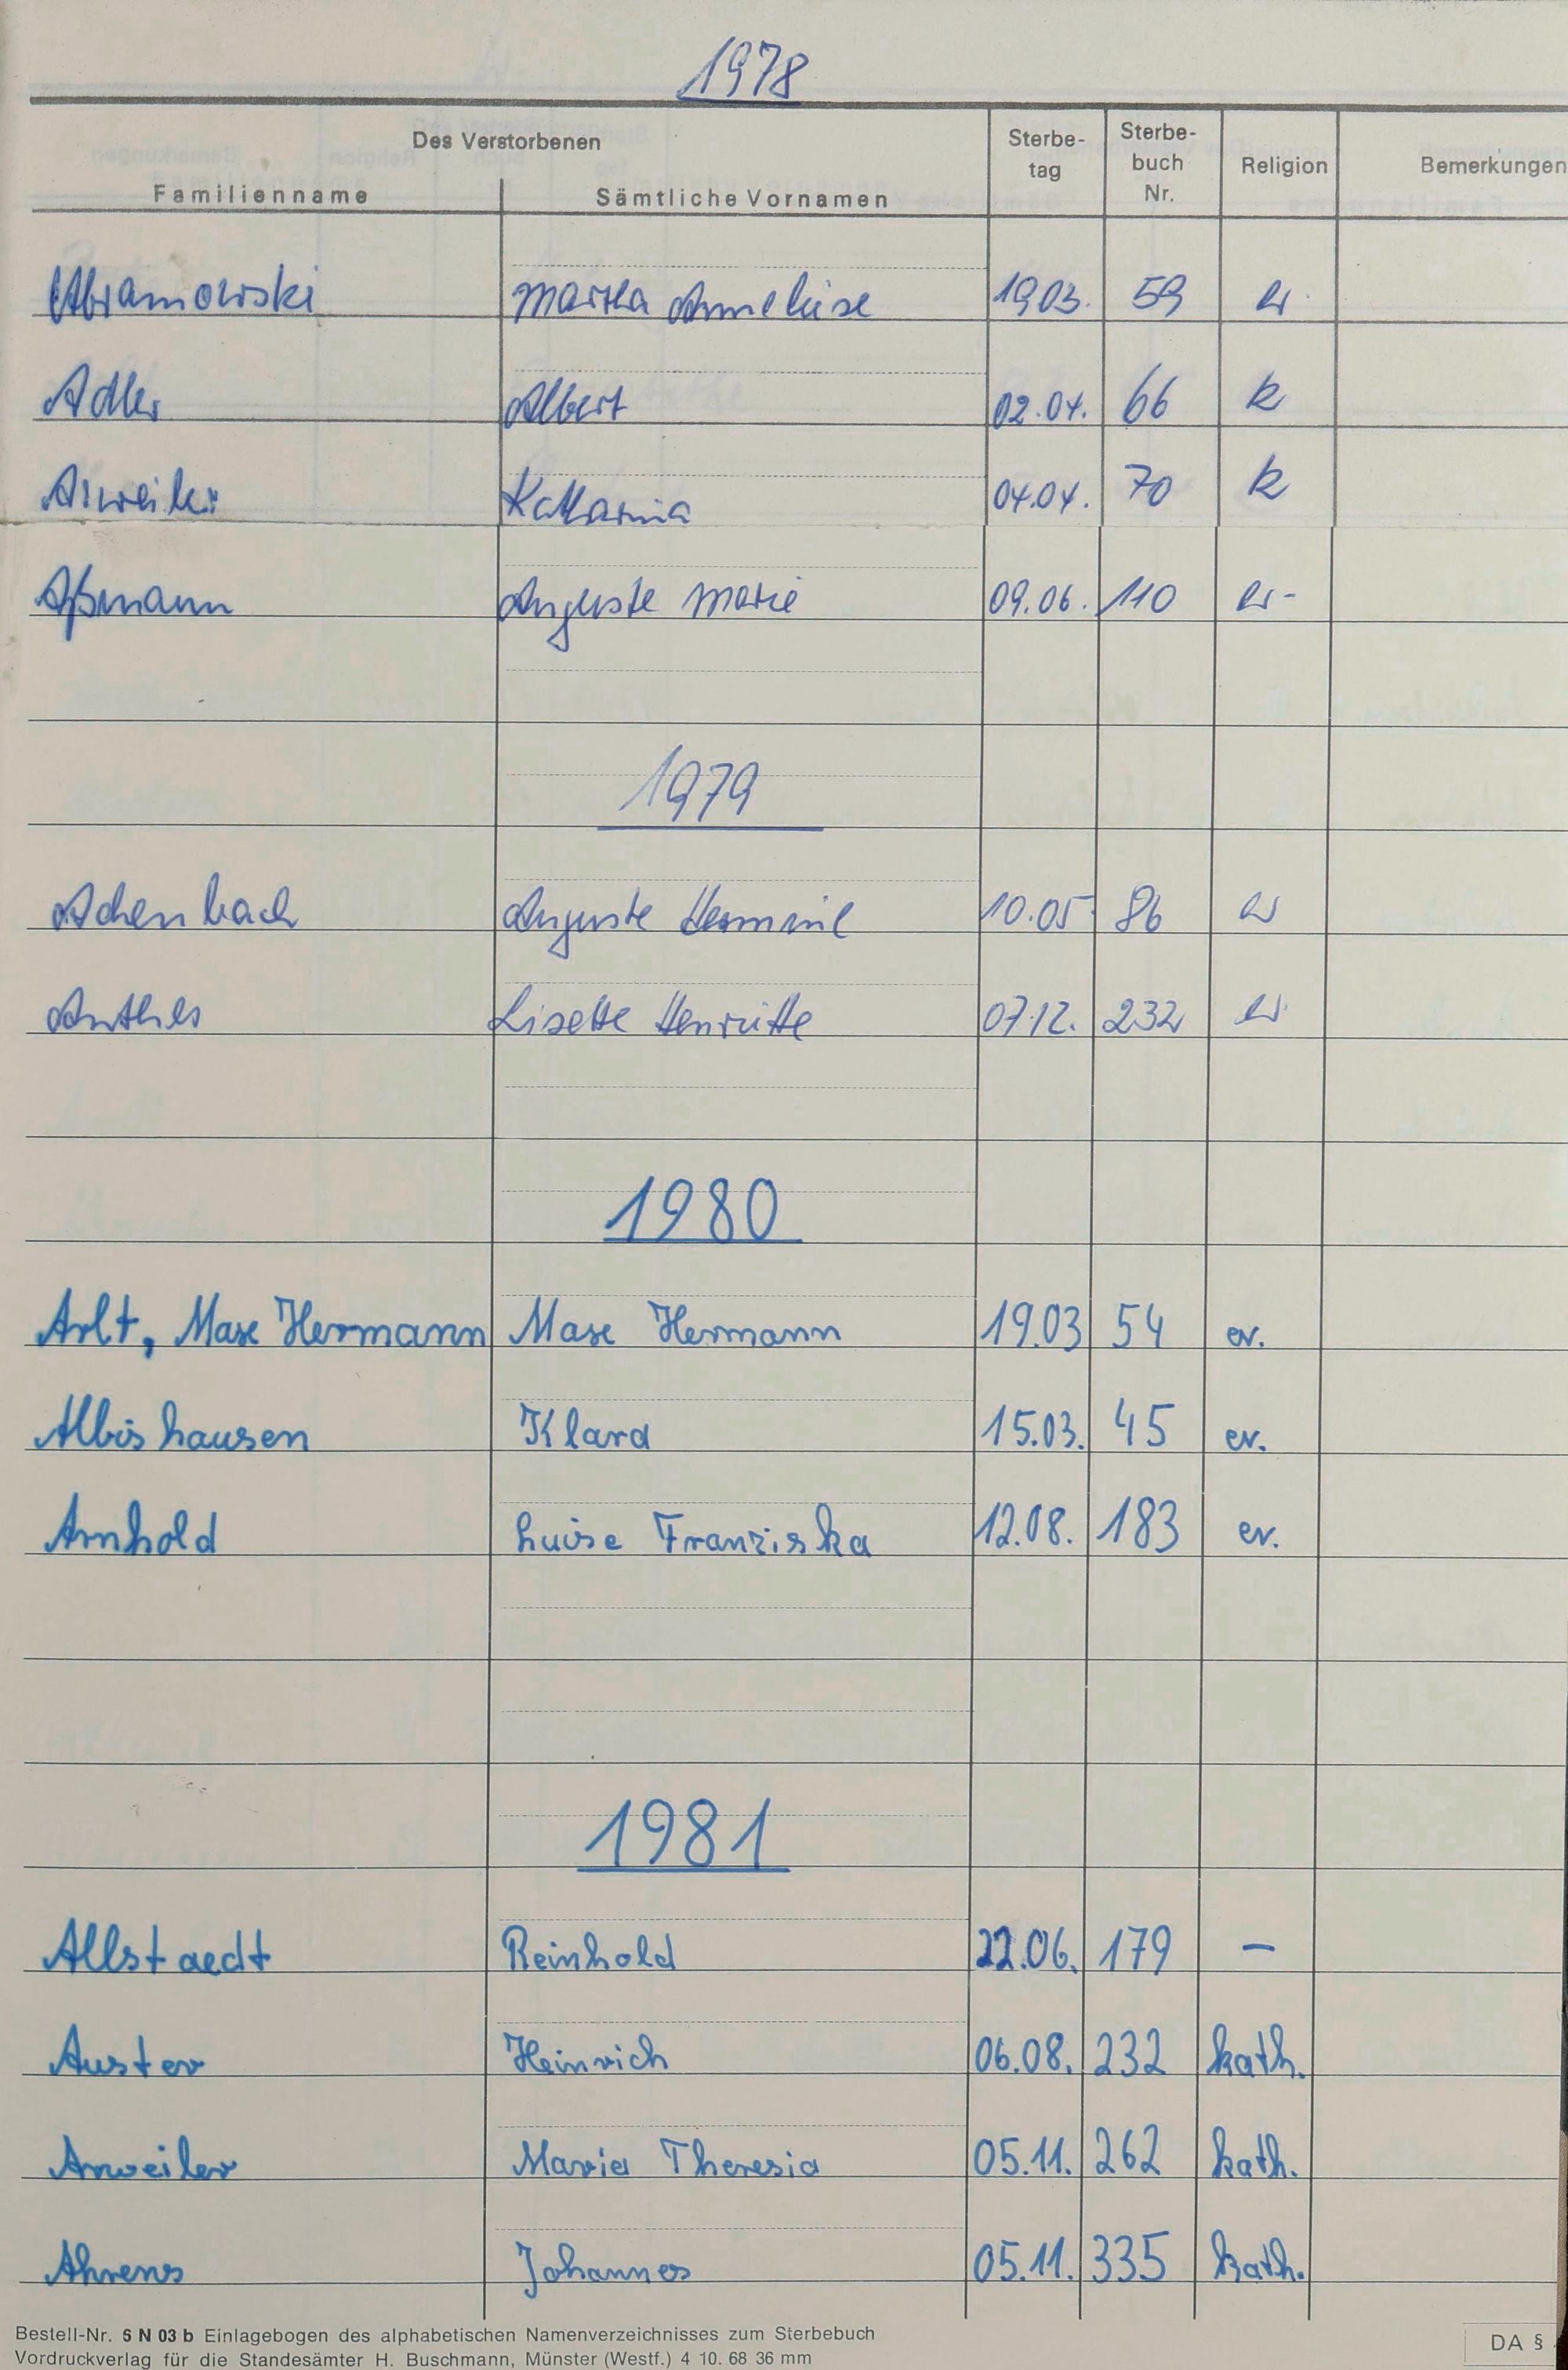 1978
Des Verstorbenen Sterbe- Sterbe-
tag buch Religion Bemerkungen
Familienname Sämtliche Vornamen Nr.
Abramowski Martha Anneliese 19.03. 59 ev
Adler Albert 02.04. 66 k
Arweiler Katharina 04.04. 70 k
Aßmann Auguste Marie 09.06. 110 ev-
1979
Achenbach Auguste Hermine 10.05 86 ev
Anthes Lisette Henriette 07.12. 232 ev
1980
Arlt, Max Hermann Max Hermann 19.03 54 ev.
Albishausen Klara 15.03. 45 ev.
Arnhold Luise Franziska 12.08. 183 ev.
1981
Allstaedt Reinhold 22.06. 179 –
Auster Heinrich 06.08. 232 kath.
Arweiler Maria Theresia 05.11. 262 kath.
Ahrens Johannes 05.11. 335 kath.
Bestell-Nr. 5 N 03 b Einlagebogen des alphabetischen Namenverzeichnisses zum Sterbebuch
Vordruckverlag für die Standesämter H. Buschmann, Münster (Westf.) 4 10. 68 36 mm
DA §